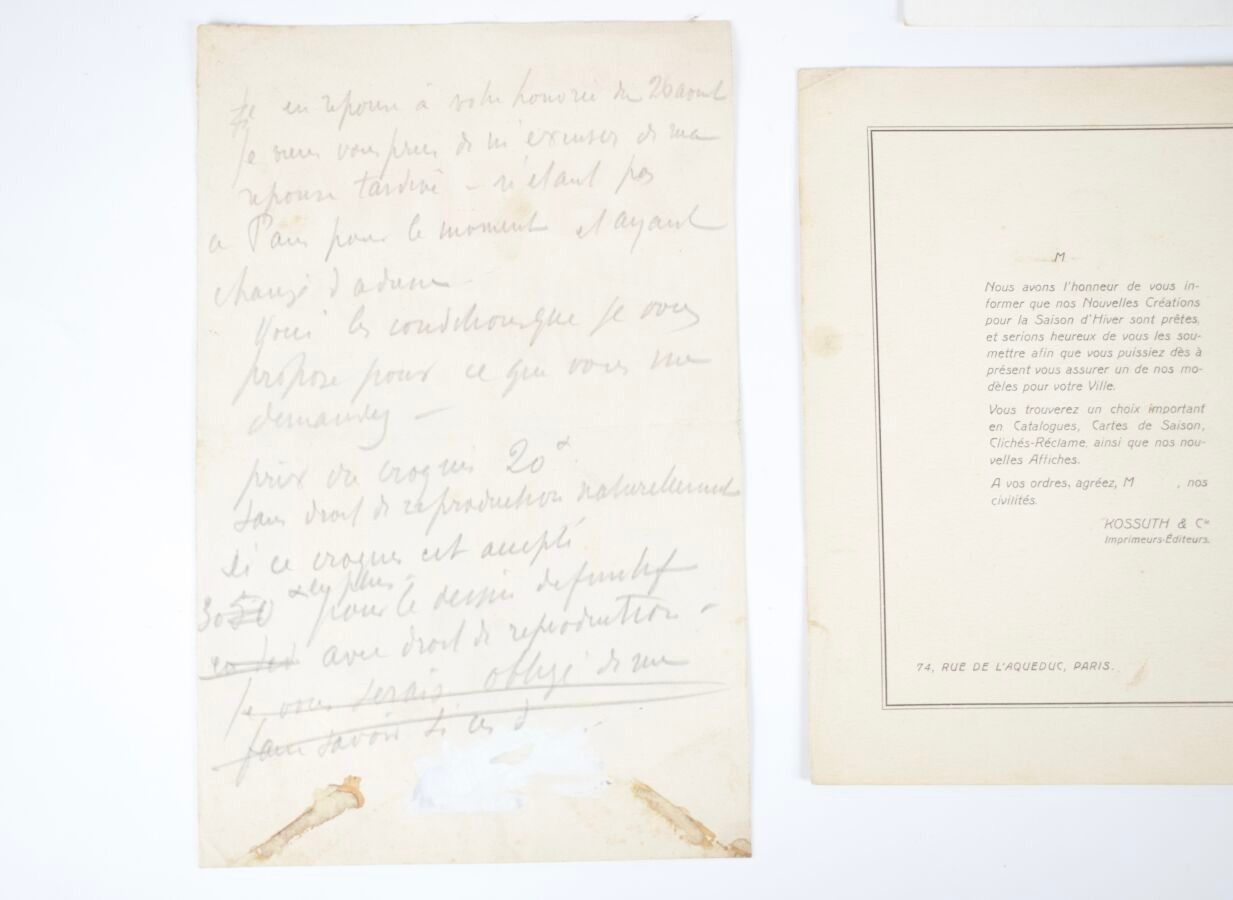 en réponse à votre honorée du 26 aout
je viens vous prier de m'excuser de ma
réponse tardive - n'étant pas
a Paris pour le moment et ayant
changé d'adresse
Voici les conditions que je vous
propose pour ce que vous me
demandez -
prix du croquis 20
sans droit de reproduction naturellement
si ce croquis est accepté
en plus
30 50 pour le dessin definitif
avec droit de reproduction -
je vous serais obligé de me
faire savoir si ces d
M
Nous avons l'honneur de vous in-
former que nos Nouvelles Créations
pour la Saison d'Hiver sont prêtes,
et serions heureux de vous les sou-
mettre afin que vous puissiez dès à
présent vous assurer un de nos mo-
dèles pour votre Ville.
Vous trouverez un choix important
en Catalogues, Cartes de Saison,
Clichés-Réclame, ainsi que nos nou-
velles Affiches.
A vos ordres, agréez, M , nos
civilités.
KOSSUTH & Cie
Imprimeurs-Éditeurs.
74, RUE DE L'AQUEDUC, PARIS.